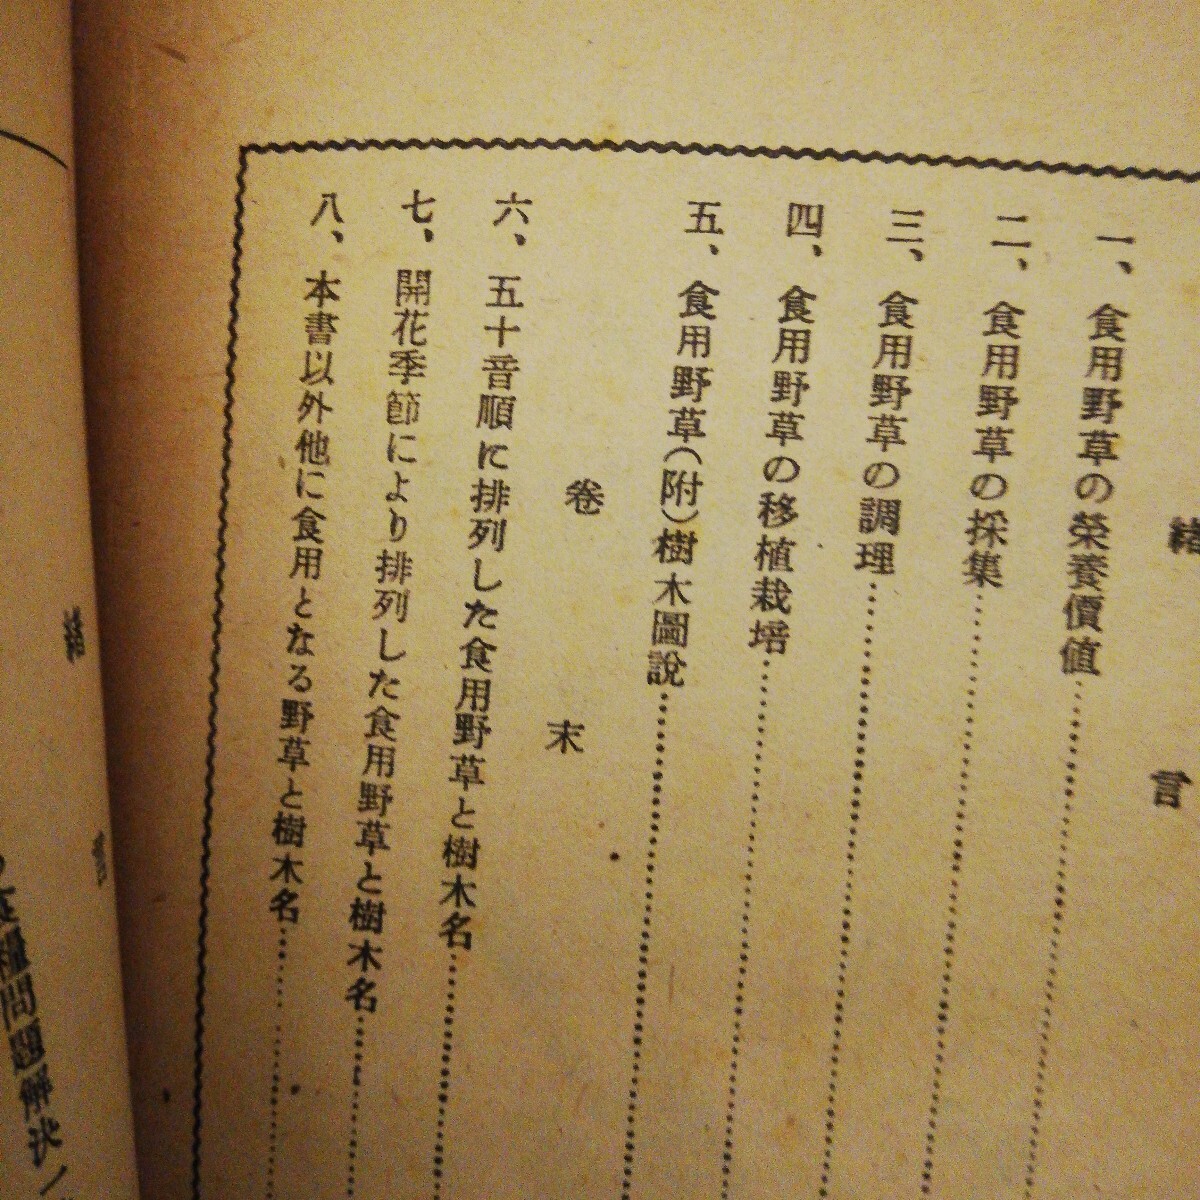 緒言
一、食用野草の榮養價値
二、食用野草の採集
三、食用野草の調理
四、食用野草の移植栽培
五、食用野草(附)樹木圖說
卷末
六、五十音順に排列した食用野草と樹木名
七、開花季節により排列した食用野草と樹木名
八、本書以外他に食用となる野草と樹木名
緒言
糧問題解決